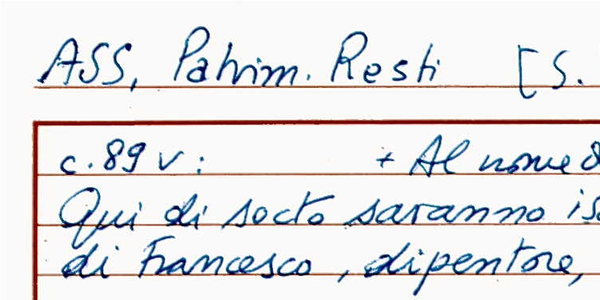 ASS, Patrim. Resti [S.
c. 89 v: + Al nome
Qui di socto saranno
di Francesco, dipentore,